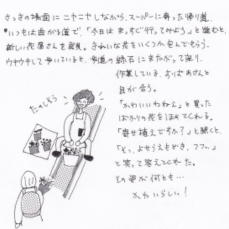 さっきの場面に ニヤニヤしながら、スーパーに寄った帰り道、
いつもは曲がる道で、「今日は まっすぐ行ってみよう」と進むと、
新しい花屋さんを発見。きれいな花をいくつか包んでもらう。
ウキウキして歩いていると、歩道の縁石にまたがって座り、
作業している、おばあさんと
目が合う。
「かわいいわねえ」と買った
ばかりの花をほめてくれる。
「寄せ植えですか?」と聞くと、
「そっ、よせうえもどき、フフ。」
と笑って答えてくれた。
その姿が何とも…
かわいらしい!
たのしそう